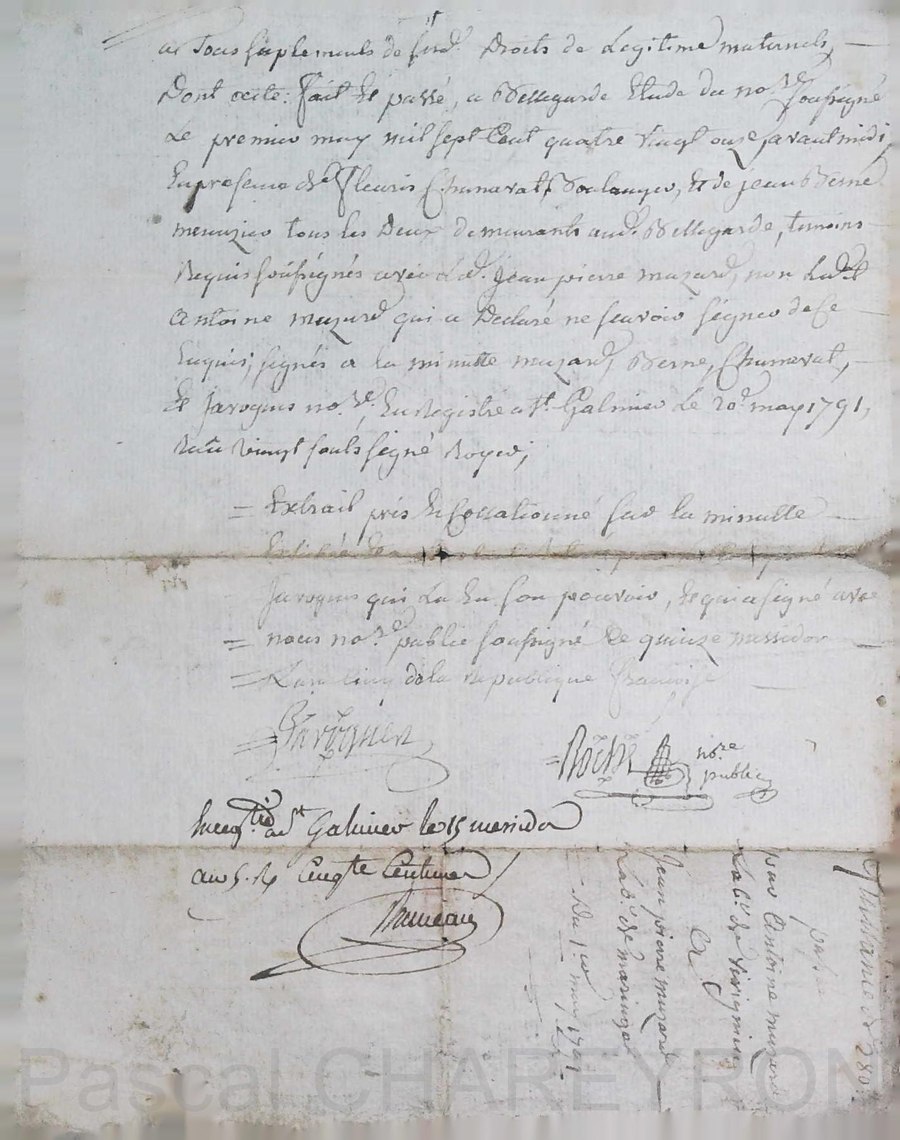 a tous suplements de sesd. Droits de Legitime maternels,
Dont acte: fait et passé, a Bellegarde Etude du no.re soussigné
Le premier may mil sept Cent quatre vingt onze avant midi,
En presence de fleuris Chumerat, Boulanger, et de jean Berne
menuzier tous les Deux demeurants aud. Bellegarde, temoins
Requis soussignés avec Led. Jean pierre muzard, non Led.
Antoine muzard qui a Declaré ne savoir signer de ce
Enquis; signés a la minutte muzard, Berne, Chumerat,
et Jaroquis no.re. Enregistré a St. Galmier Le 20 may 1791,
vingt sous signé Royer;
= Extrait pris et Collationné sur la minutte
qui La En son pouvoir, et qui a signé avec
= nous no.re public soussigné Ce quinze messidor
= L'an cinq de la Republique francoise
= Roche no.re public
Enreg.tré a St Galmier le 15 messidor
an 5. R. Cinq.te Centimes
Quittance de 280
pass
par Antoine muzard
Lab.r de
a
Jean pierre muzard
Lab.r de
Du 1.er may 1791
Pascal CHAREYRON